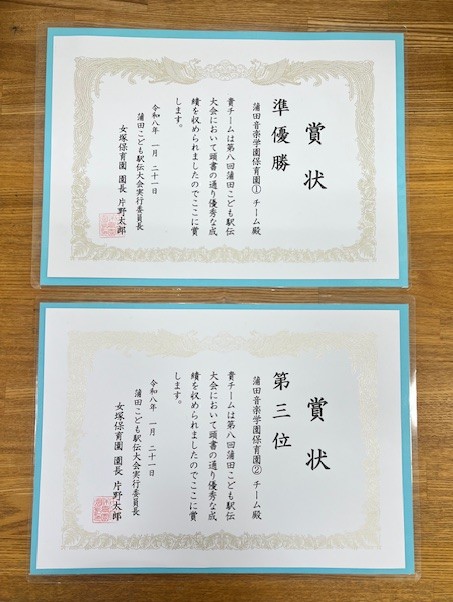 賞状
準優勝
蒲田音楽学園保育園① チーム殿
貴チームは第八回蒲田こども駅伝
大会において頭書の通り優秀な成
績を収められましたのでここに賞
します。
令和八年 一月 二十一日
蒲田こども駅伝大会実行委員長
女塚保育園 園長 片野太郎
賞状
第三位
蒲田音楽学園保育園② チーム殿
貴チームは第八回蒲田こども駅伝
大会において頭書の通り優秀な成
績を収められましたのでここに賞
します。
令和八年 一月 二十一日
蒲田こども駅伝大会実行委員長
女塚保育園 園長 片野太郎